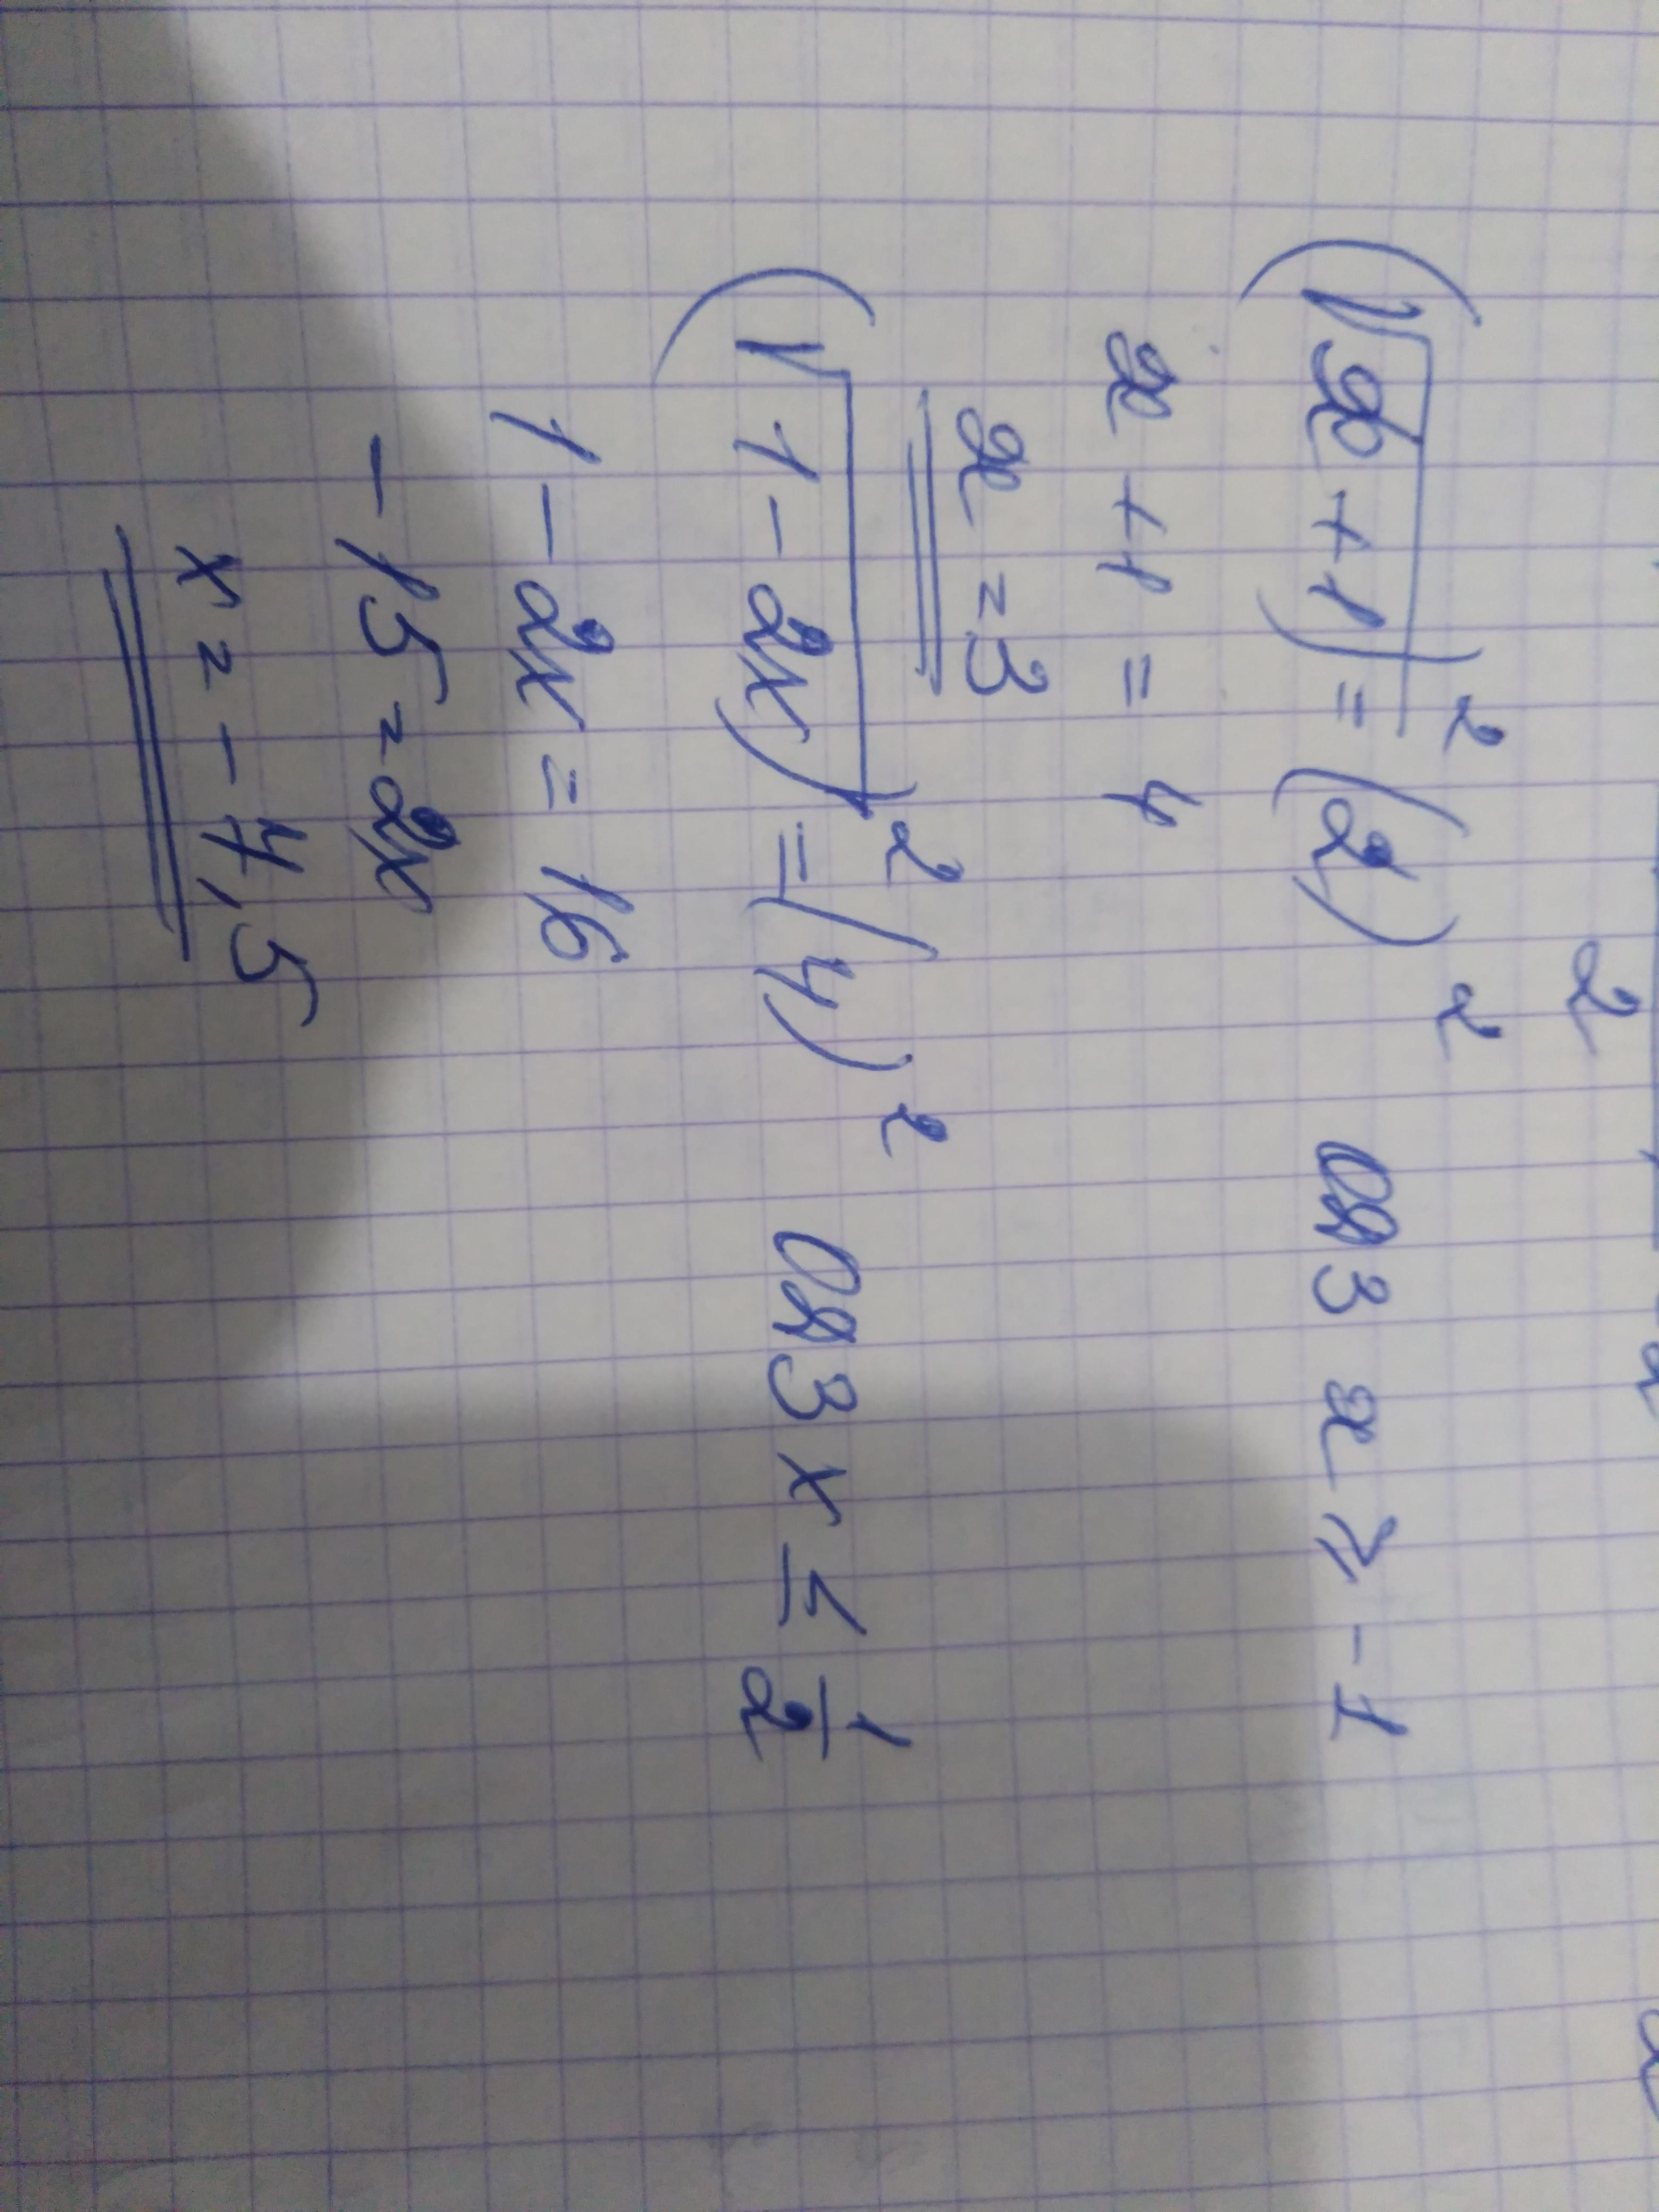 2
(√x+1)² = (2)² ОДЗ x ⩾ -1
x + 1 = 4
x = 3
(√1 - 2x)² = (4)² ОДЗ x ≤ 1/2
1 - 2x = 16
- 15 = 2x
x = - 7,5